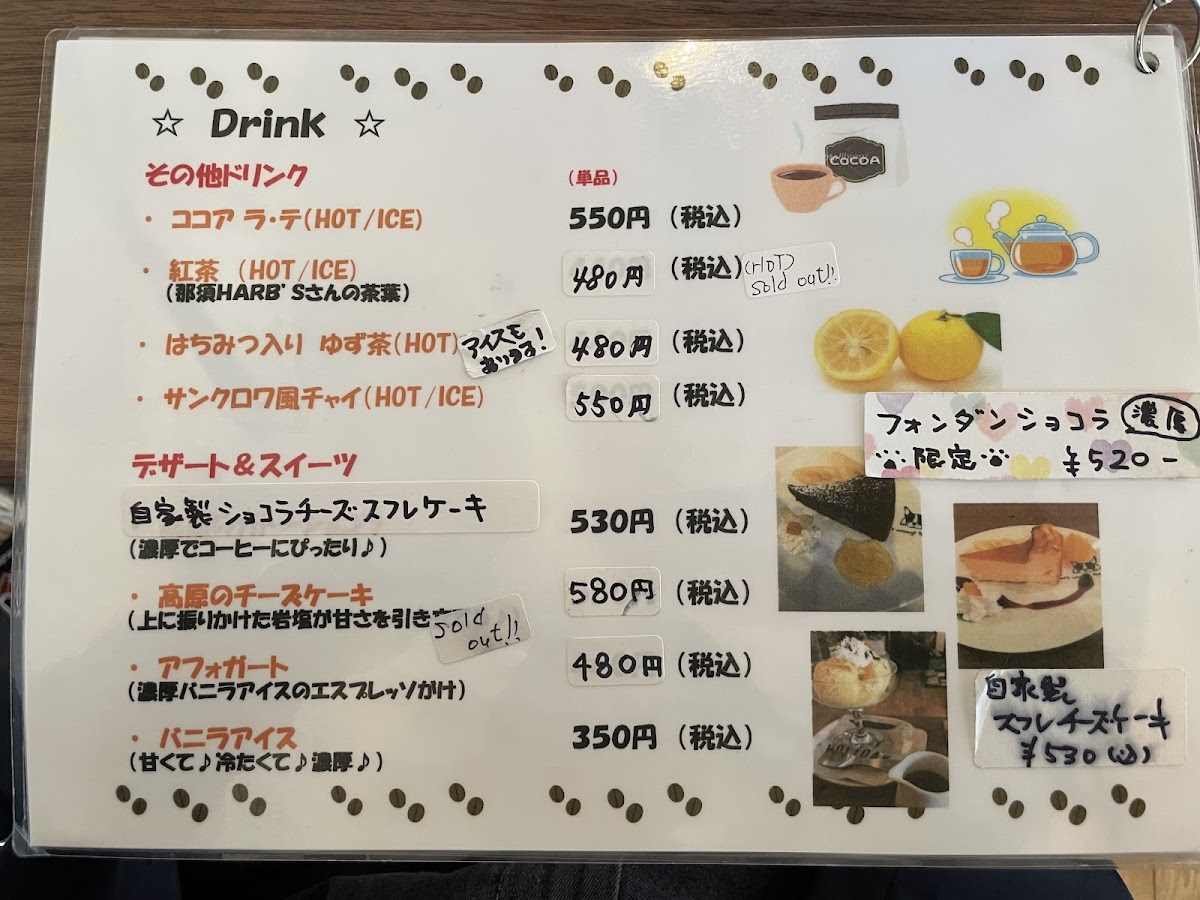 ☆ Drink ☆
COCOA
その他ドリンク (単品)
・ ココア ラ・テ(HOT/ICE) 550円 (税込)
・ 紅茶 (HOT/ICE) 480円 (税込) (HOT) Sold out!!
(那須HARB'Sさんの茶葉)
・ はちみつ入り ゆず茶(HOT) アイスも あります! 480円 (税込)
・ サンクロワ風チャイ(HOT/ICE) 550円 (税込)
フォンダンショコラ 濃厚
限定 ¥520-
デザート&スイーツ
自家製ショコラチーズスフレケーキ 530円 (税込)
(濃厚でコーヒーにぴったり♪)
・ 高原のチーズケーキ 580円 (税込)
(上に振りかけた岩塩が甘さを引き
Sold out!!
・ アフォガート 480円 (税込)
(濃厚バニラアイスのエスプレッソがけ)
・ バニラアイス 350円 (税込)
(甘くて♪冷たくて♪濃厚♪)
自家製
スフレチーズケーキ
¥530(込)